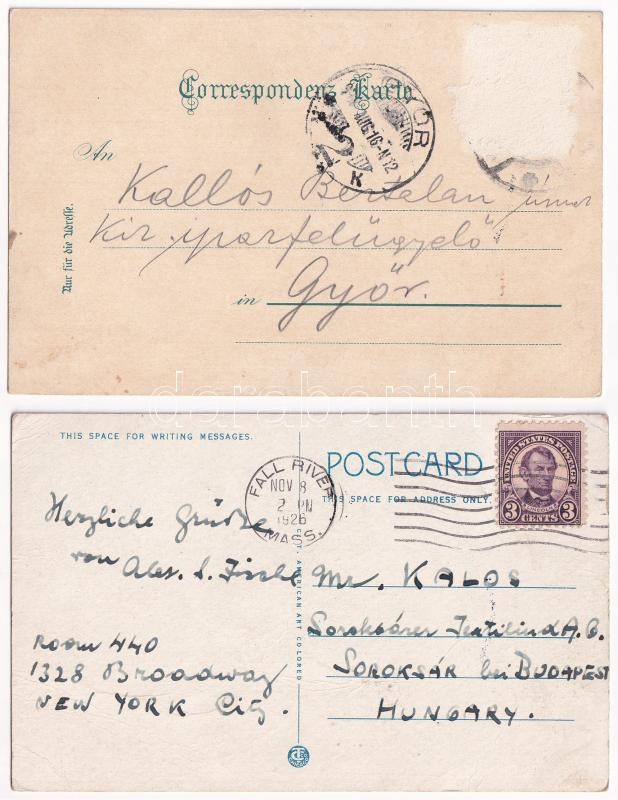 Correspondenz-Karte
GYŐR
AUG 16
K
An
Kallós Bertalan
Kir iparfelügyelő
in Győr.
Nur für die Adresse.
darabanth
THIS SPACE FOR WRITING MESSAGES.
FALL RIVER
NOV 8
2 PM
1926
MASS.
POST CARD
THIS SPACE FOR ADDRESS ONLY
UNITED STATES POSTAGE
LINCOLN
3 CENTS 3
Herzliche Grüße
von Alex. S.
Room 440
1328 Broadway
NEW YORK City.
C.T. AMERICAN ART COLORED
Mr. KALOS
Soroksárer Textilind A.G.
SOROKSÁR bei BUDAPEST
HUNGARY.